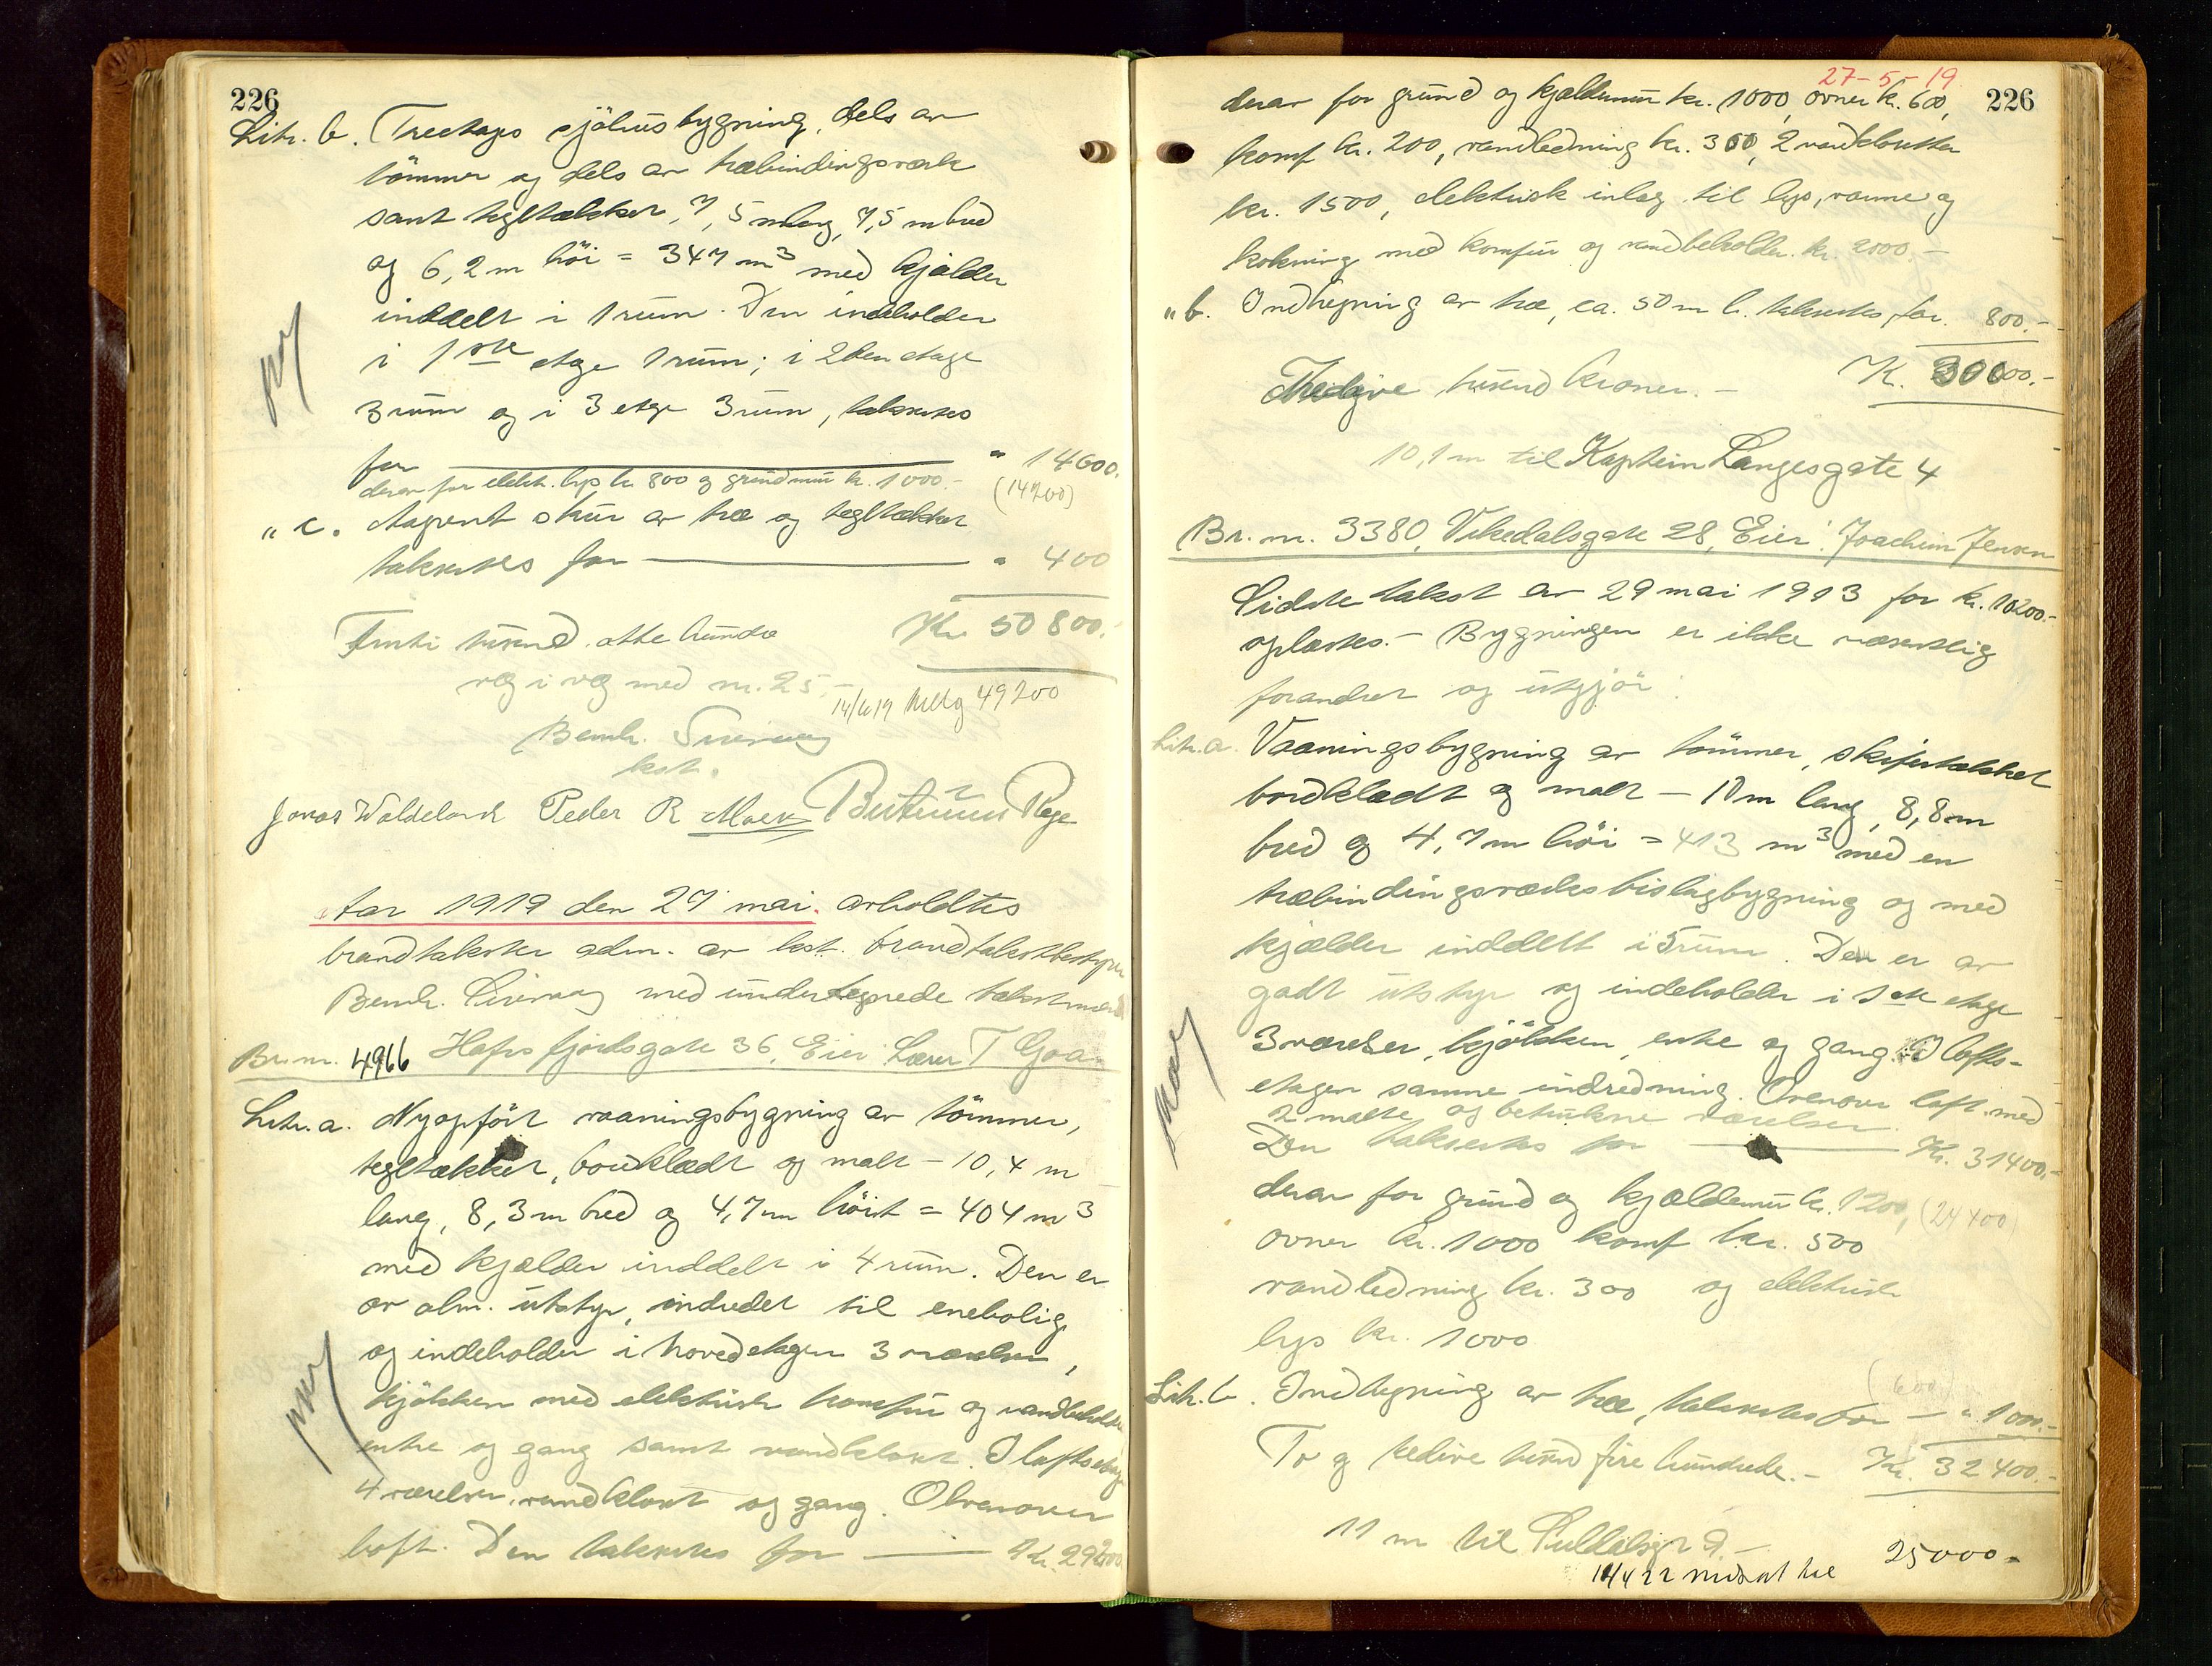 226
Litr. b. Treetages sjöhusbygning, dels av
tömmer og dels av træbindingsverk
samt tegltækket, 7,5 m lang, 7,5 m bred
og 6,2 m höi = 347 m³ med kjælder
inddelt i 1 rum. Den indeholder
i 1ste etage 1 rum; i 2den etage
3 rum og i 3 etage 3 rum, takseres
for " 14600.
derav for elektr. lys kr. 800 og grundmur kr. 1000.- (14200)
" c. Aapent skur av træ og tegltækket
takseres for " 400
Femti tusend otte hundre Kr. 50800.
væg i væg med nr. 25.-
14/6 19 49200
Bernh.
kst.
Jonas Waldeland Peder R.
Aar 1919 den 27 mai avholdtes
brandtakster adm. av kst. brandtakstbestyrer
Bernh. med undertegnede takstmænd
Br. nr. 4966 Hafrsfjordsgate 36, Eier Lærer T Goa
Litr. a. Nyopført vaaningsbygning av tömmer,
tegltækket, bordklædt og malt - 10,4 m
lang, 8,3 m bred og 4,7 m höit = 404 m³
med kjælder inddelt i 4 rum. Den er
av alm. utstyr, indredet til enebolig
og indeholder i hovedetagen 3 værelser,
kjökken med elektrisk komfur og vandbeholder
entre og gang samt vandklosset. I loftsetage
4 værelser, vandklosset og gang. Ovenover
loft. Den takseres for Kr. 29200
27-5-19
226
derav for grund og kjældermur kr. 1000, ovner kr. 600,
komf kr. 200, vandledning kr. 300, 2 vandklosetter
kr. 1500, elektrisk inlæg til lys, varme og
kokning med komfur og vandbeholder kr. 2000.-
" b. Indhegning av træ, ca. 50 m l. takseres for 800.-
Tredive tusend kroner.- Kr. 30000.-
10,1 m til Kaptein Langesgate 4
Br. nr. 3380, Vikedalsgate 28, Eier: Joachim Jensen
Sidste takst av 29 mai 1913 for kr. 10200.-
oplæstes.- Bygningen er ikke væsentlig
forandret og utgjör:
Litr. a. Vaaningsbygning av tömmer, skifertækket
bordklædt og malt - 10 m lang, 8,8 m
bred og 4,7 m höi = 413 m³ med en
træbindingsværks bislagbygning og med
kjælder inddelt i 5 rum. Den er av
godt utstyr og indeholder i 1ste etage
3 værelser, kjökken, entre og gang. I lofts-
etagen samme indredning. Ovenover loft med
2 malte og betrukne værelser.
Den takseres for Kr. 31400.-
derav for grund og kjældermur kr. 1200, (24400)
ovner kr. 1000 komf kr. 500
vandledning kr. 300 og elektrisk
lys kr. 1000
(600)
Litr. b. Indhegning av træ, takseres for - " 1000.-
To og tredive tusend fire hundrede.- Kr. 32400.-
11 m til Suldalsgt 9.-
14/4 22 nedsat til 25000-